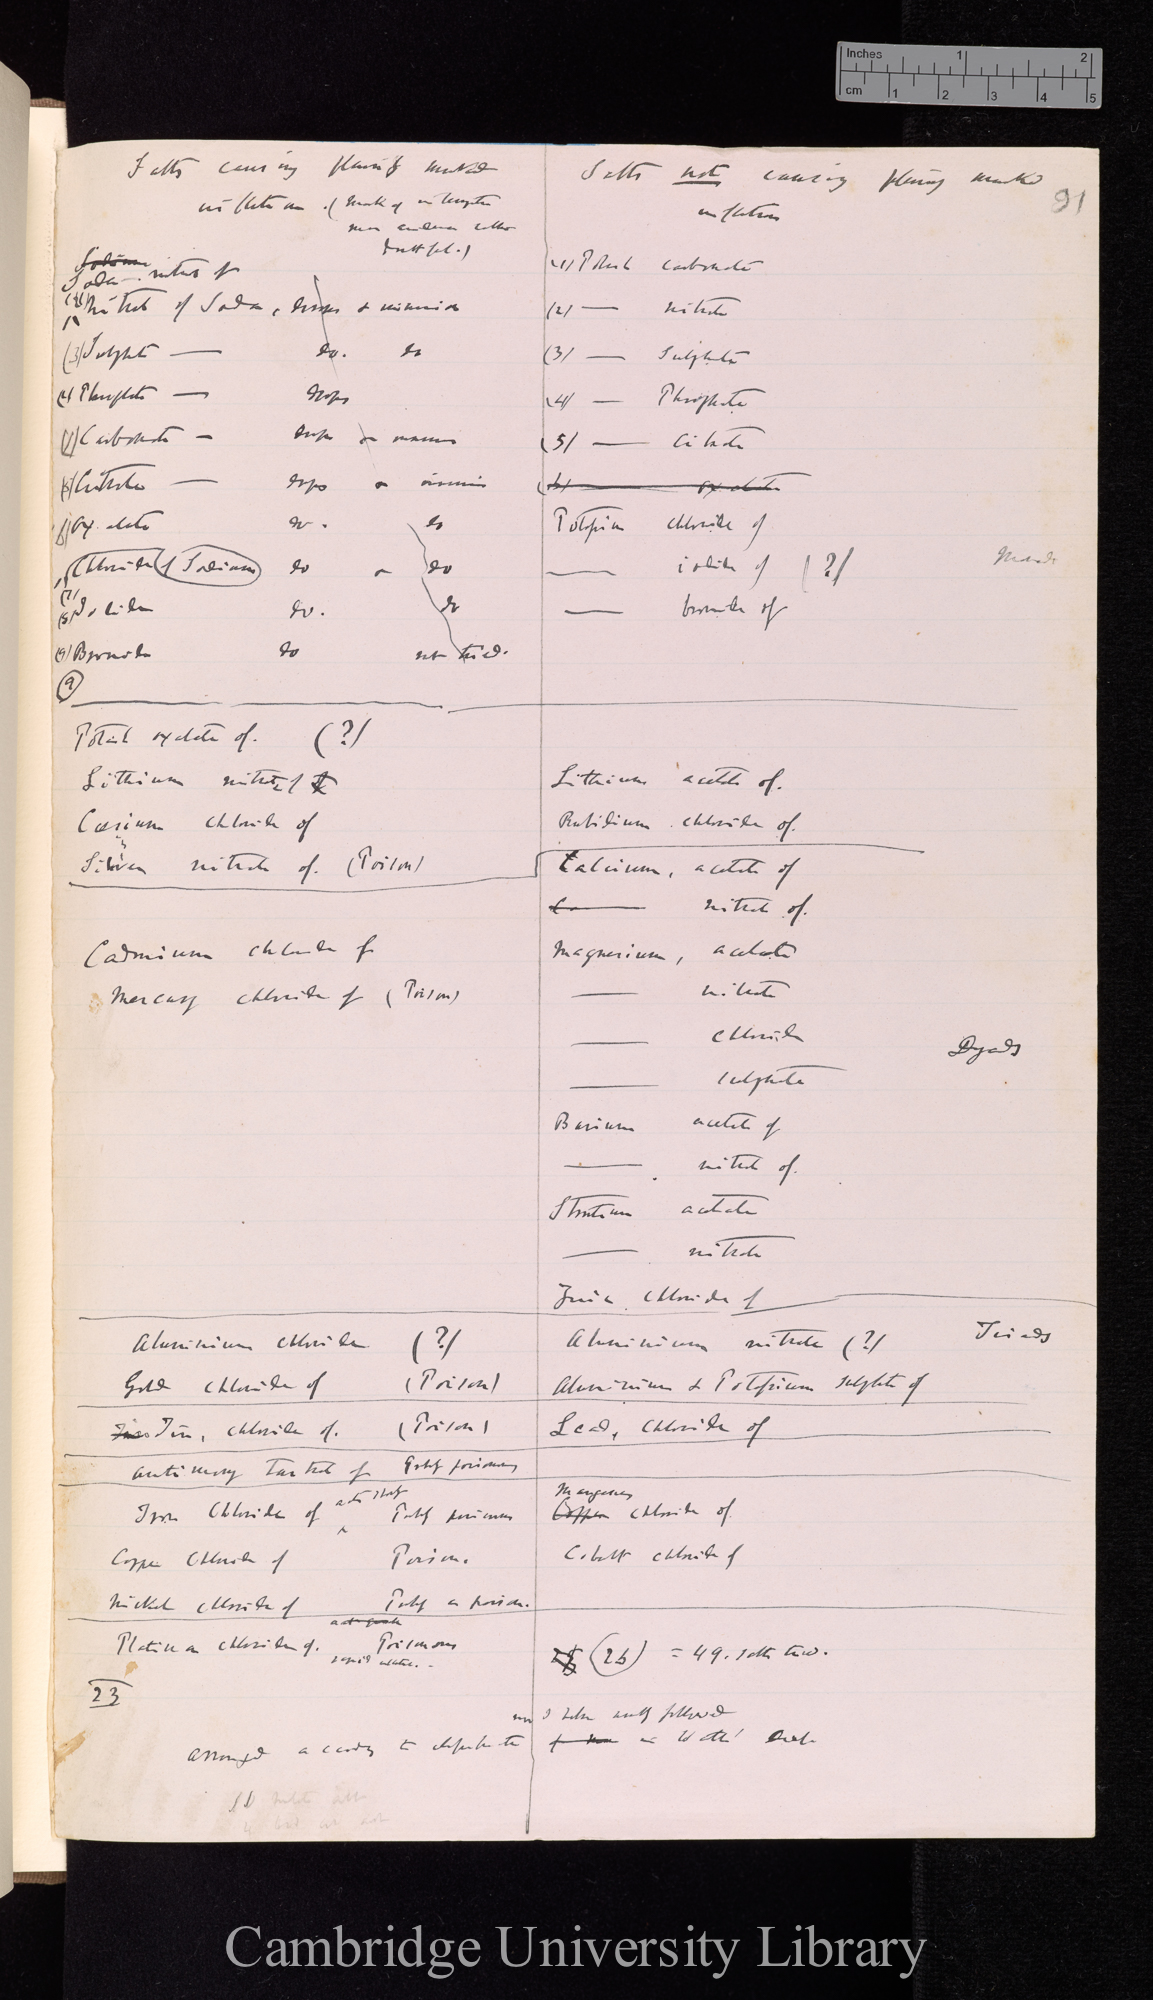 Inches 1 2
cm 1 2 3 4 5
91
Salts causing plainly marked
inflection
Salts not causing plainly marked
inflection
Soda nitrate of
Nitrate of Soda, drops & immersion
(3) Sulphate — do. do
(4) Phosphate — drops
Carbonate — drops or immersion
(5) Citrate — drops or immersion
(6) Oxalate do. do
Chloride of Sodium do or do
(7)
(8) Iodide do. do
(9) Bromide do not tried.
9
(1) Potash carbonate
(2) — nitrate
(3) — Sulphate
(4) — Phosphate
(5) — Citrate
(6) — oxalate
Potassium chloride of
— iodide of (?)
— bromide of
Potash oxalate of. (?)
Lithium nitrate of
Cæsium chloride of
Silver nitrate of. (Poison)
Lithium acetate of.
Rubidium chloride of.
Calcium, acetate of
— nitrate of.
Cadmium chloride of
Mercury chloride of (Poison)
Magnesium, acetate
— nitrate
— chloride
— sulphate
Dyads
Barium acetate of
— nitrate of.
Strontium acetate
— nitrate
Zinc chloride of
Aluminium chloride (?)
Aluminium nitrate (?)
Triads
Gold chloride of (Poison)
Aluminium & Potassium sulphate of
Tin, chloride of. (Poison)
Lead, chloride of
Antimony tartrate of Probly poisonous
Iron Chloride of Probly poisonous
Manganese
Copper chloride of.
Copper Chloride of Poison.
Cobalt chloride of
Nickel chloride of Probly a poison.
Platinum chloride of. Poisonous
(26) = 49. salts tried.
23
arranged according to
in Watts'
Cambridge University Library